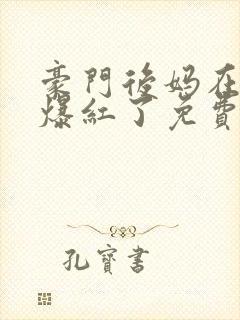 豪門後妈在
爆紅了免費
孔寶書